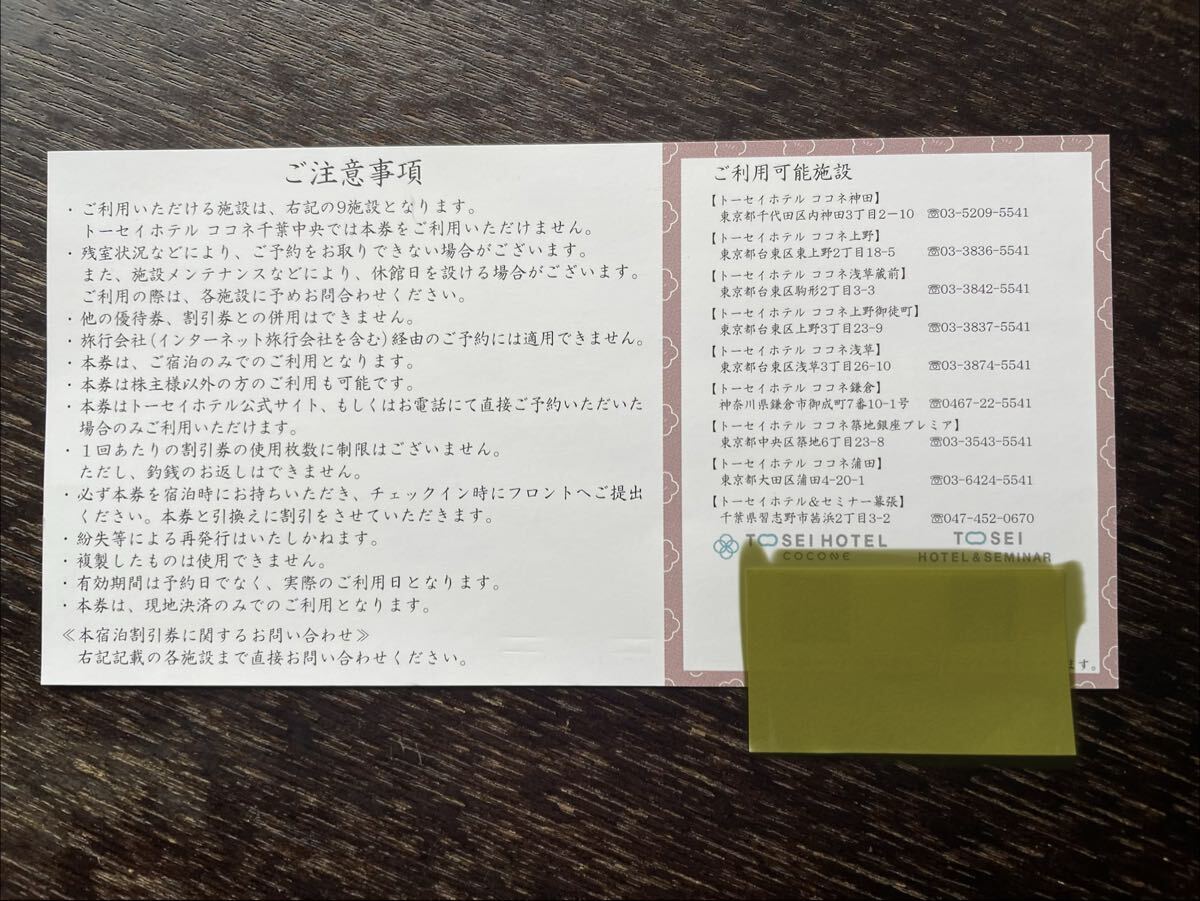 ご注意事項
・ご利用いただける施設は、右記の9施設となります。
トーセイホテル ココネ千葉中央では本券をご利用いただけません。
・残室状況などにより、ご予約をお取りできない場合がございます。
また、施設メンテナンスなどにより、休館日を設ける場合がございます。
ご利用の際は、各施設に予めお問合わせください。
・他の優待券、割引券との併用はできません。
・旅行会社(インターネット旅行会社を含む)経由のご予約には適用できません。
・本券は、ご宿泊のみでのご利用となります。
・本券は株主様以外の方のご利用も可能です。
・本券はトーセイホテル公式サイト、もしくはお電話にて直接ご予約いただいた
場合のみご利用いただけます。
・1回あたりの割引券の使用枚数に制限はございません。
ただし、釣銭のお返しはできません。
・必ず本券を宿泊時にお持ちいただき、チェックイン時にフロントへご提出
ください。本券と引換えに割引をさせていただきます。
・紛失等による再発行はいたしかねます。
・複製したものは使用できません。
・有効期間は予約日でなく、実際のご利用日となります。
・本券は、現地決済のみでのご利用となります。
≪本宿泊割引券に関するお問い合わせ≫
右記記載の各施設まで直接お問い合わせください。
ご利用可能施設
【トーセイホテル ココネ神田】
東京都千代田区内神田3丁目2-10 ☏03-5209-5541
【トーセイホテル ココネ上野】
東京都台東区東上野2丁目18-5 ☏03-3836-5541
【トーセイホテル ココネ浅草蔵前】
東京都台東区駒形2丁目3-3 ☏03-3842-5541
【トーセイホテル ココネ上野御徒町】
東京都台東区上野3丁目23-9 ☏03-3837-5541
【トーセイホテル ココネ浅草】
東京都台東区浅草3丁目26-10 ☏03-3874-5541
【トーセイホテル ココネ鎌倉】
神奈川県鎌倉市御成町7番10-1号 ☏0467-22-5541
【トーセイホテル ココネ築地銀座プレミア】
東京都中央区築地6丁目23-8 ☏03-3543-5541
【トーセイホテル ココネ蒲田】
東京都大田区蒲田4-20-1 ☏03-6424-5541
【トーセイホテル&セミナー幕張】
千葉県習志野市茜浜2丁目3-2 ☏047-452-0670
TOSEI HOTEL
COCONE
TOSEI
HOTEL & SEMINAR
ます。